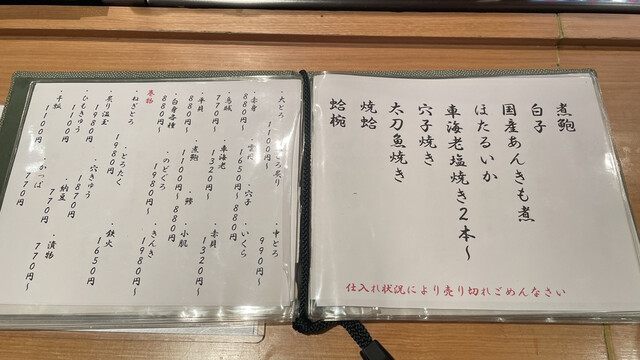 煮鮑
白子
国産あんきも煮
ほたるいか
車海老塩焼き2本〜
穴子焼き
太刀魚焼き
焼蛤
蛤椀
仕入れ状況により売り切れごめんなさい
・大とろ
1100円〜
ろ炙り
・中とろ
990円〜
・赤身
880円〜
1650円〜
・いくら
880円
・烏賊
770円〜
・車海老
1320円〜
・穴子
・赤貝
1320円〜
・平貝
880円〜
・煮鮑
1100円〜
・鯵
880円〜
・小肌
・白身各種
880円〜
・のどぐろ
1980円〜
・きんき
1980円〜
巻物
・ねぎとろ
・とろたく
1980円
・鉄火
1650円
・炙り温玉
1980円
・穴きゅう
1870円
・ひもきゅう
1100円
・納豆
770円
・漬物
770円〜
・干瓢
1100円
かっぱ
770円